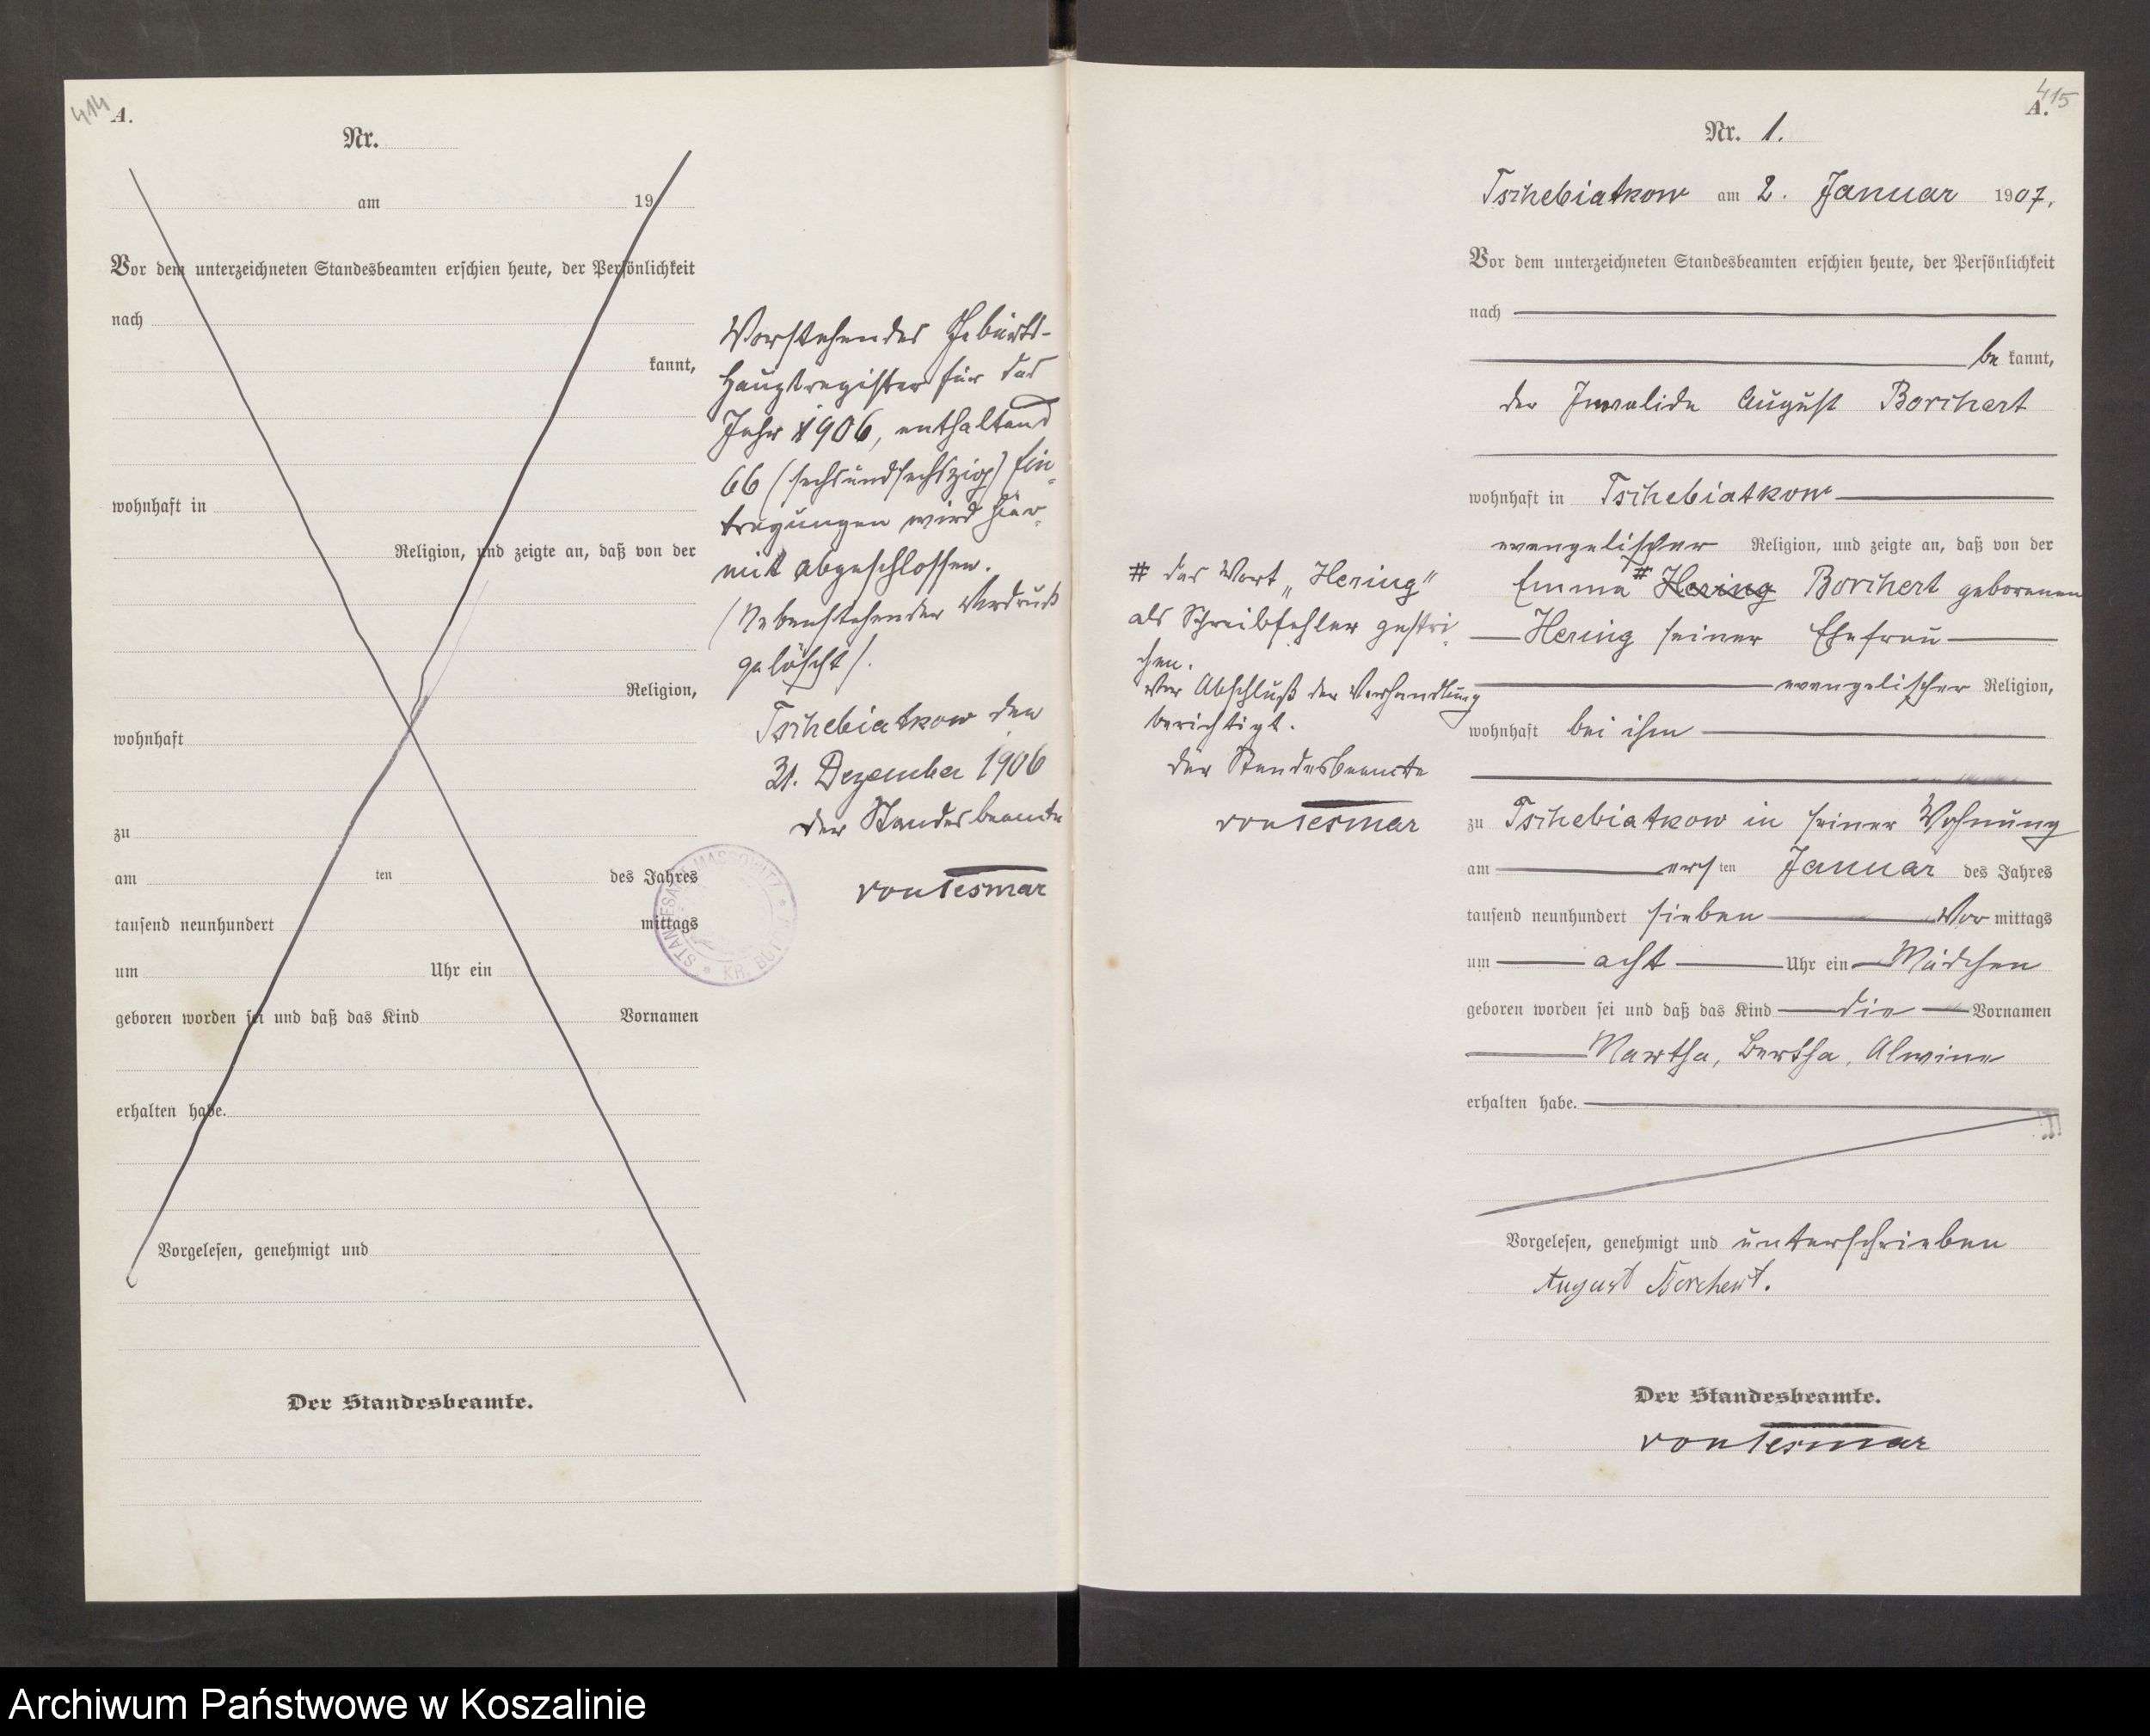 414
A.
Nr.
am 19
Vor dem unterzeichneten Standesbeamten erschien heute, der Persönlichkeit
nach
kannt,
wohnhaft in
Religion, und zeigte an, daß von der
Religion,
wohnhaft
zu
am ten des Jahres
tausend neunhundert mittags
um Uhr ein
geboren worden sei und daß das Kind Vornamen
erhalten habe.
Vorgelesen, genehmigt und
Der Standesbeamte.
Vorstehendes Geburts-
hauptregister für das
Jahr 1906, enthaltend
66 (sechsundsechszig) Ein-
tragungen wird hier-
mit abgeschlossen.
(Nebenstehender Vordruck
gelöscht).
Tschebiatkow den
31. Dezember 1906
Der Standesbeamte
von Tesmar
STANDESAMT MASSOWITZ * KR. BÜTOW *
415
A.
Nr. 1.
Tschebiatkow am 2. Januar 1907.
Vor dem unterzeichneten Standesbeamten erschien heute, der Persönlichkeit
nach
be kannt,
der Invalide August Borchert
wohnhaft in Tschebiatkow
evangelischer Religion, und zeigte an, daß von der
Emma # Hering Borchert geborenen
Hering seiner Ehefrau
evangelischer Religion,
wohnhaft bei ihm
zu Tschebiatkow in seiner Wohnung
am ersten Januar des Jahres
tausend neunhundert sieben Vor mittags
um acht Uhr ein Mädchen
geboren worden sei und daß das Kind die Vornamen
Martha, Bertha, Alwine
erhalten habe.
Vorgelesen, genehmigt und unterschrieben
August Borchert.
Der Standesbeamte.
von Tesmar
# das Wort „Hering"
als Schreibfehler gestri-
chen.
Vor Abschluß der Verhandlung
berichtigt.
Der Standesbeamte
von Tesmar
Archiwum Państwowe w Koszalinie